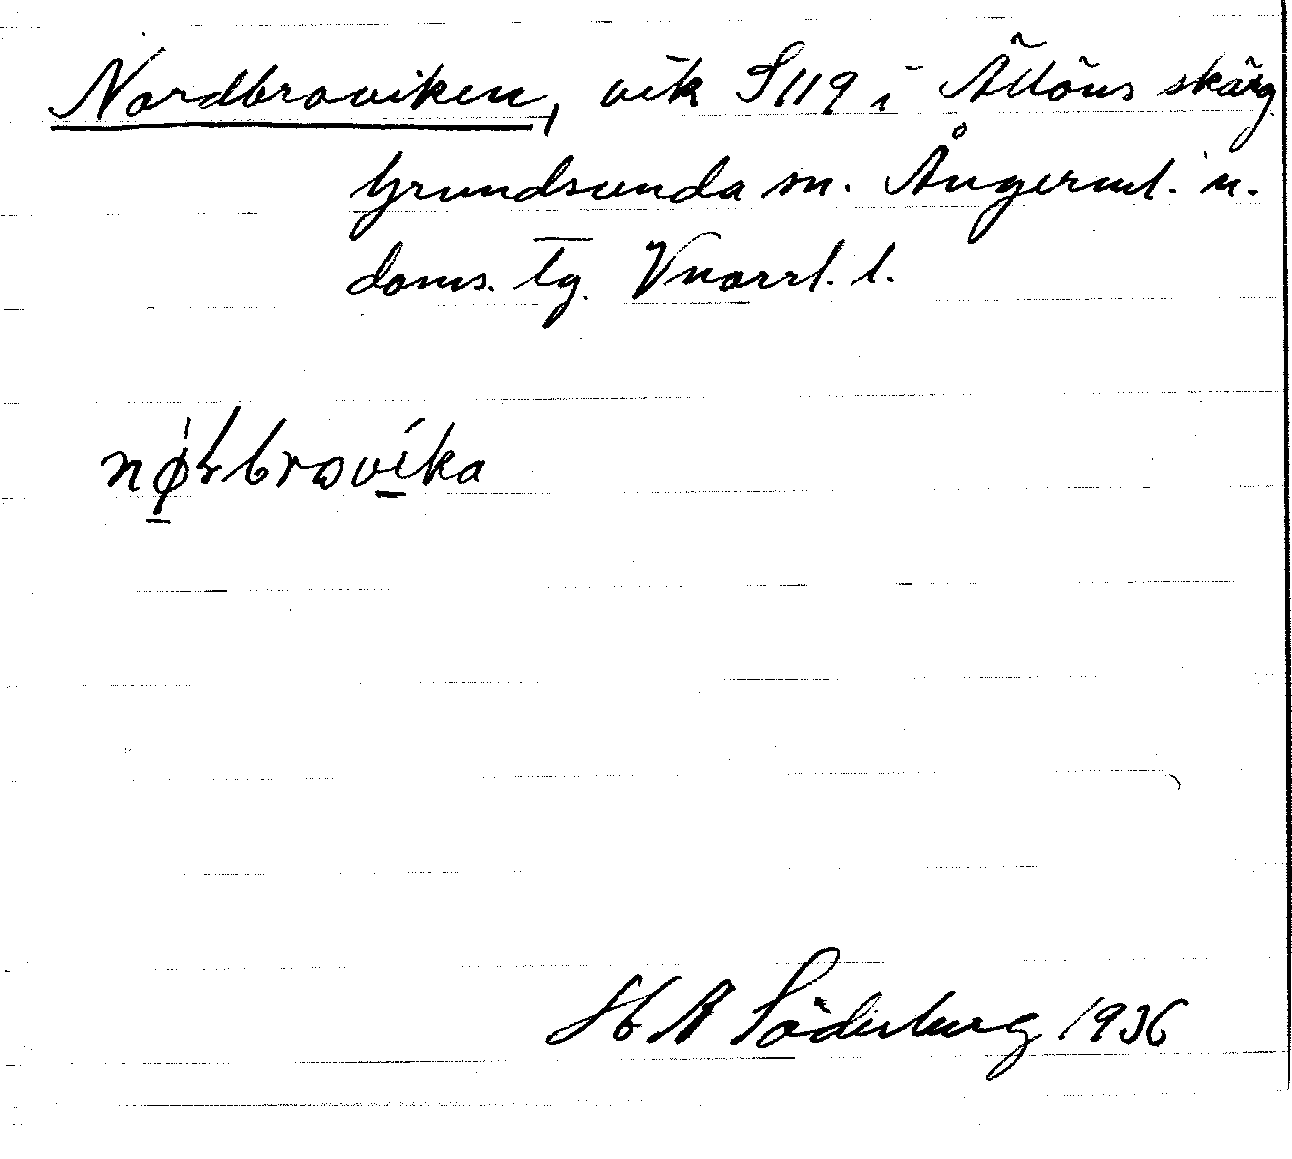 Nordbroviken, vik S 119 i Ällöns skärg
Grundsunda sn. Ångerml. n.
doms. tg. Vnorrl. l.
nørbrovika
H A Söderberg 1936